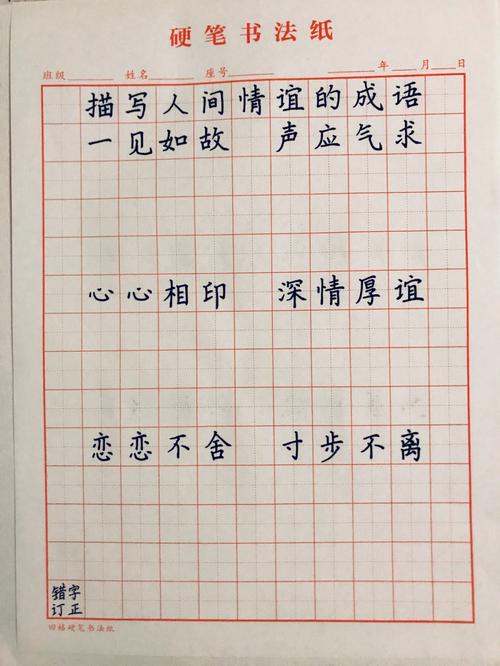 硬笔书法纸
班级 姓名 座号 年 月 日
描写人间情谊的成语
一见如故 声应气求
心心相印 深情厚谊
恋恋不舍 寸步不离
错字
订正
田格硬笔书法纸